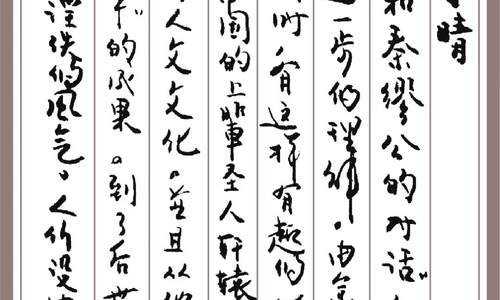 晴
和秦缪公的对话
一步的理解。由余
所有这样有趣的
国的上古圣人轩辕
人文文化。并且从
下的成果。到了后世
淫佚的风气。人们没